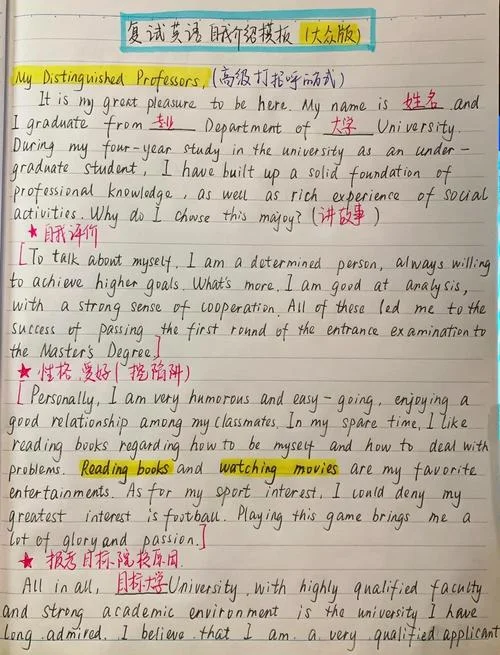 复试英语 自我介绍模板 (大众版)
My Distinguished Professors, (高级打招呼方式)
It is my great pleasure to be here. My name is 姓名 and
I graduate from 专业 Department of 大学 University.
During my four-year study in the university as an under-
graduate student, I have built up a solid foundation of
professional knowledge, as well as rich experience of social
activities. Why do I choose this majoy? (讲故事)
★自我评价
[To talk about myself, I am a determined person, always willing
to achieve higher goals. What's more, I am good at analysis,
with a strong sense of cooperation. All of these led me to the
success of passing the first round of the entrance examination to
the Master's Degree.]
★性格、爱好 (挖陷阱)
[Personally, I am very humorous and easy-going, enjoying a
good relationship among my classmates. In my spare time, I like
reading books regarding how to be myself and how to deal with
problems. Reading books and watching movies are my favorite
entertainments. As for my sport interest, I could deny my
greatest interest is football. Playing this game brings me a
lot of glory and passion.]
★报考目标院校原因
All in all, 目标大学 University, with highly qualified faculty
and strong academic environment is the university I have
long admired. I believe that I am a very qualified applicant